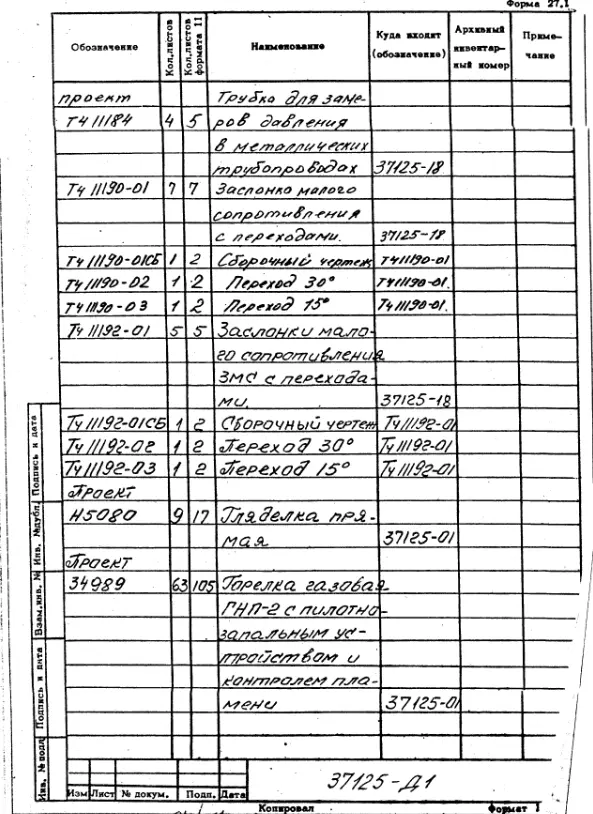 Форма 27.1
Обозначение Кол.листов Кол.листов формата 11 Наименование Куда входит (обозначение) Архивный инвентарный номер Примечание
проект Трубка для заме-
ТЧ 11184 4 5 ров давления
в металлических
трубопроводах 37125-18
ТЧ 11190-01 7 7 Заслонка малого
сопротивления
с переходами. 37125-18
ТЧ 11190-01СБ 1 2 Сборочный чертеж ТЧ11190-01
ТЧ 11190-02 1 2 Переход 30° ТЧ11190-01.
ТЧ 11190-03 1 2 Переход 15° ТЧ11190-01.
ТЧ 11192-01 5 5 Заслонки мало-
го сопротивления
ЗМС с перехода-
ми. 37125-18
ТЧ 11192-01СБ 1 2 Сборочный чертеж ТЧ11192-01
ТЧ 11192-02 1 2 Переход 30° ТЧ 11192-01
ТЧ 11192-03 1 2 Переход 15° ТЧ 11192-01
Проект
Н5080 9 17 Гляделка пря-
мая 37125-01
Проект
34989 63 105 Горелка газовая
ГНП-2 с пилотно-
запальным уст-
тройством и
контролем пла-
мени 37125-01
Инв. № подл. Подпись и дата Взам.инв. № Инв. №дубл. Подпись и дата
37125-Д1
Изм Лист № докум. Подп. Дата
Копировал Формат 1